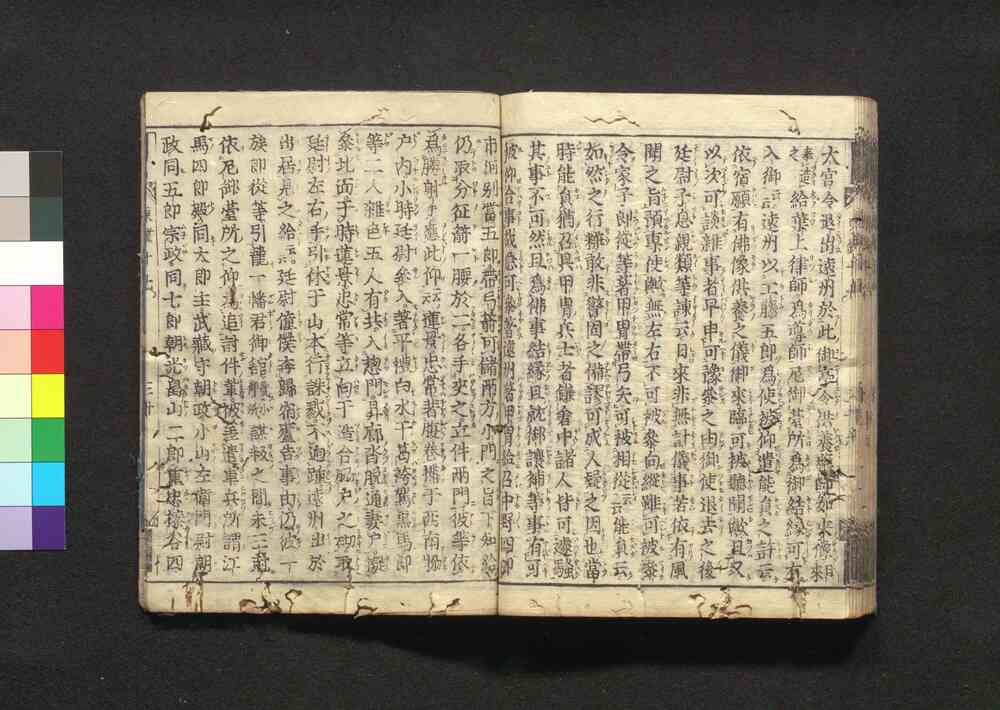 太官令退出遠州於此御堂令供養藥師如來像日來
奉造
之給葉上律師爲導師尼御臺所爲御結縁可有
入御云云遠州以工藤五郎爲使被仰遣能員之許云
依宿願有佛像供養之儀御來臨可被聽聞歟且又
以次可談雜事者早申可豫參之由御使退去之後
廷尉子息親類等諫云日來非無計儀事若依有風
聞之旨預專使歟無左右不可被參向縱雖可被參
令家子郎從等著甲冑帶弓矢可被相從云云能員云
如然之行粧敢非警固之備謬可成人疑之因也當
時能員猶召具甲冑兵士者鎌倉中諸人皆可遽騒
其事不可然且爲佛事結縁且就御讓補等事有可
被仰合事哉怱可參者遠州著甲冑給召中野四郎
市河別當五郎帶弓箭可儲兩方小門之旨下知給
仍取分征箭一腰於二各手夾之立件兩門彼輩依
爲勝射手應此仰云云蓮景忠常著腹卷搆于西南脇
戸内小時廷尉參入著平禮白水干葛袴駕黒馬郎
等二人雜色五人有共入惣門昇廊沓脱通妻戸擬
參北面于時蓮景忠常等立向于造合脇戸之砌取
廷尉左右手引伏于山本竹誅戮不廻踵遠州出於
出居見之給云云廷尉僮僕奔歸宿廬告事由仍彼一
族郎從等引籠一幡君御館謀叛之間未三剋
依尼御臺所之仰爲追討件輩被差遣軍兵所謂江
馬四郎殿同太郎主武藏守朝政小山左衛門尉朝
政同五郎宗政同七郎朝光畠山二郎重忠榛谷四